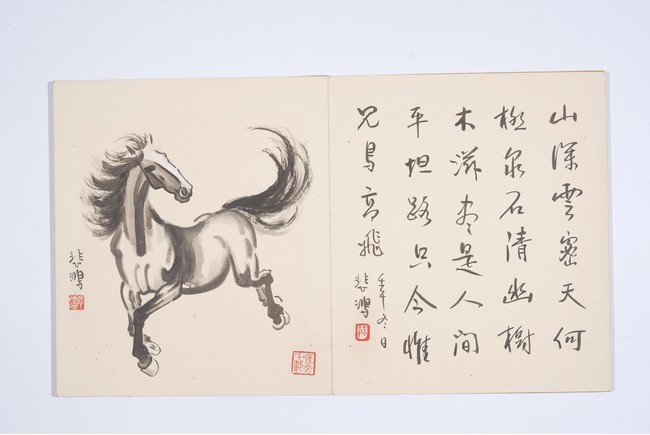 山深雲密天何
極泉石清幽樹
木滋盡是人間
平坦路只今惟
見鳥高飛
壬午冬日
悲鴻
悲鴻